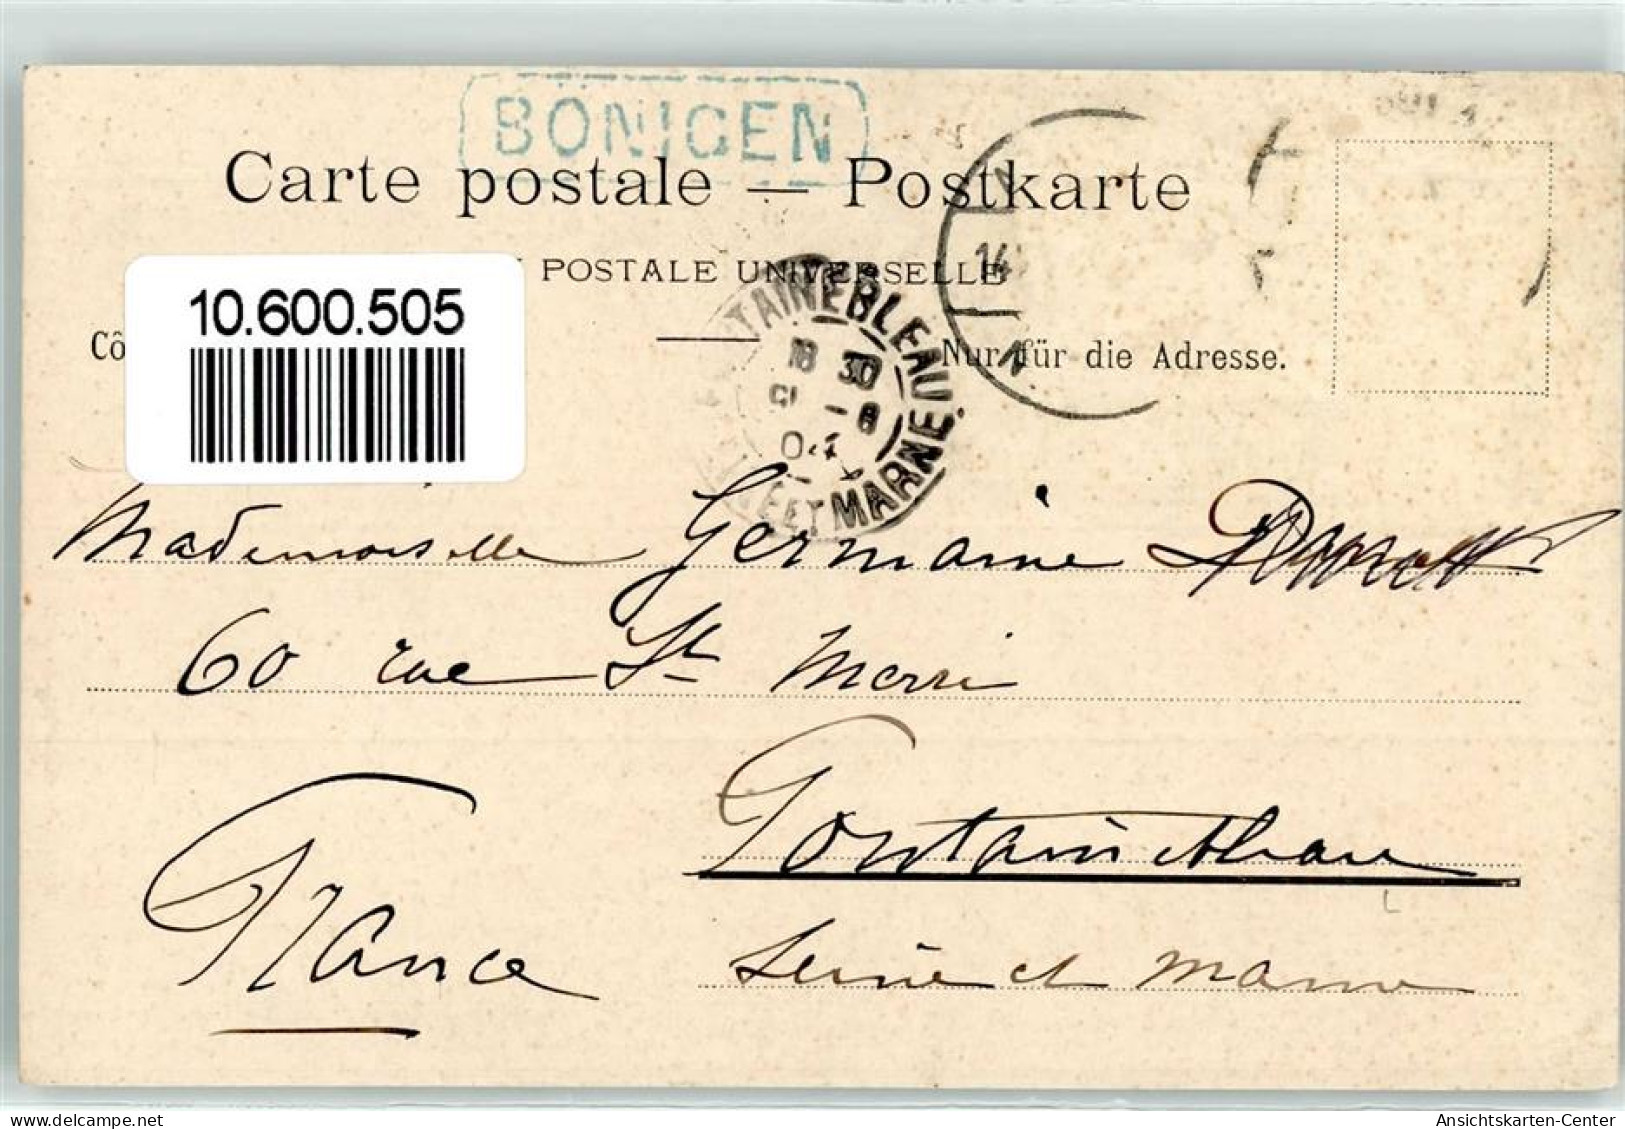 BÖNIGEN
Carte postale — Postkarte
POSTALE UNIVERSELLE
10.600.505
Cô
Nur für die Adresse.
14
TAINEBLEAU
18 30
-8
04
ET MARNE
Mademoiselle Germaine
60 rue St Merri
Fontainebleau
France
Seine et Marne
Ansichtskarten-Center